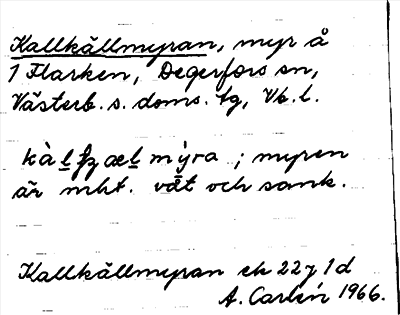 Kallkällmyran, myr å
1 Flarken, Degerfors sn,
Västerb. s. doms. tg, Vb. l.
är mkt. våt och sank.
Kallkällmyran ek 22 j 1 d
A. Carlén 1966.